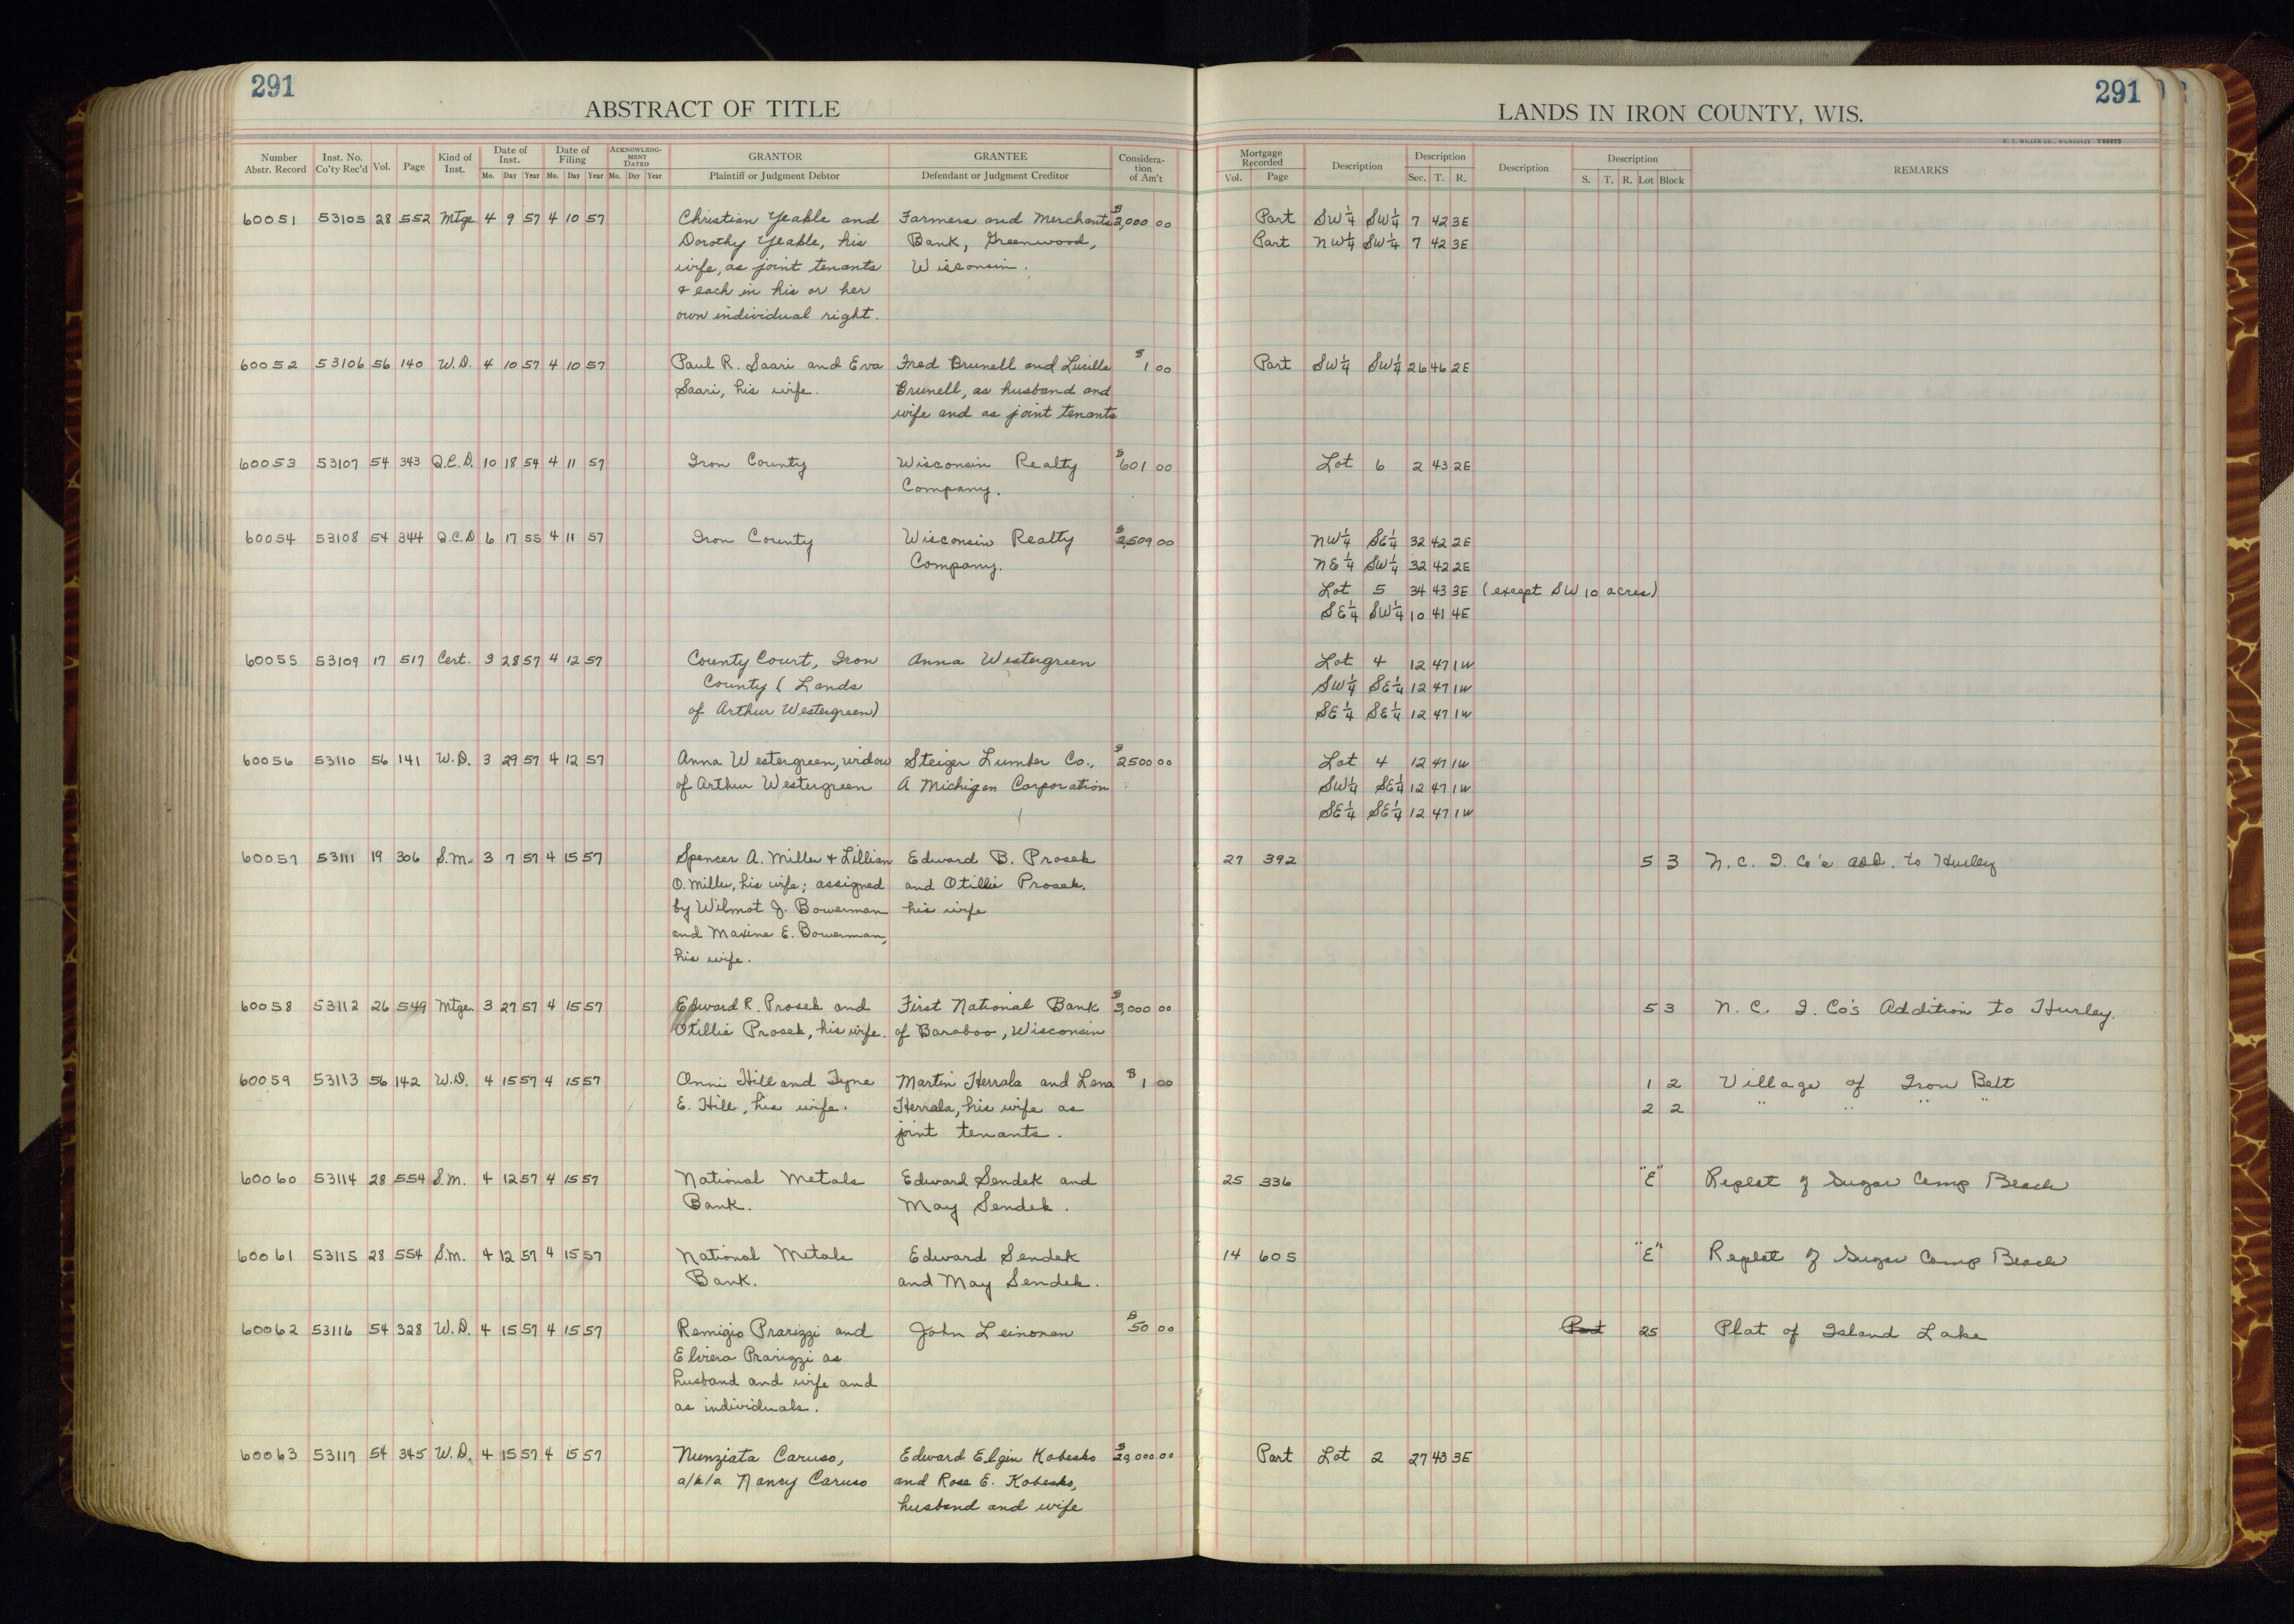 291
ABSTRACT OF TITLE
Number Abstr. Record Inst. No. Co'ty Rec'd Vol. Page Kind of Inst. Date of Inst. Mo. Day Year Date of Filing Mo. Day Year ACKNOWLEDGMENT DATED Mo. Day Year GRANTOR Plaintiff or Judgment Debtor GRANTEE Defendant or Judgment Creditor Consideration of Am't
291
LANDS IN IRON COUNTY, WIS.
Mortgage Recorded Vol. Page Description Description Sec. T. R. Description Description S. T. R. Lot Block REMARKS
60051 53105 28 552 Mtge 4 9 57 4 10 57 Christian Yeable and Farmers and Merchants $2,000 00 Part SW¼ SW¼ 7 42 3E
Dorothy Yeable, his Bank, Greenwood, Part NW¼ SW¼ 7 42 3E
wife, as joint tenants Wisconsin.
& each in his or her
own individual right.
60052 53106 56 140 W.D. 4 10 57 4 10 57 Paul R. Saari and Eva Fred Brunell and Lucille $1 00 Part SW¼ SW¼ 26 46 2E
Saari, his wife. Brunell, as husband and
wife and as joint tenants
60053 53107 54 343 Q.C.D. 10 18 54 4 11 57 Iron County Wisconsin Realty $601 00 Lot 6 2 43 2E
Company.
60054 53108 54 344 Q.C.D 6 17 55 4 11 57 Iron County Wisconsin Realty $2,509 00 NW¼ SE¼ 32 42 2E
Company. NE¼ SW¼ 32 42 2E
Lot 5 34 43 3E (except SW 10 acres)
SE¼ SW¼ 10 41 4E
60055 53109 17 517 Cert. 3 28 57 4 12 57 County Court, Iron Anna Westergreen Lot 4 12 47 1W
County (Lands SW¼ SE¼ 12 47 1W
of Arthur Westergreen) SE¼ SE¼ 12 47 1W
60056 53110 56 141 W.D. 3 29 57 4 12 57 Anna Westergreen, widow Steiger Lumber Co., $2500 00 Lot 4 12 47 1W
of Arthur Westergreen A Michigan Corporation SW¼ SE¼ 12 47 1W
SE¼ SE¼ 12 47 1W
60057 53111 19 306 S.M. 3 7 57 4 15 57 Spencer A. Miller & Lillian Edward B. Prosek 27 392 5 3 N.C. I. Co's add. to Hurley
O. Miller, his wife; assigned and Otillie Prosek,
by Wilmot J. Bowerman his wife
and Maxine E. Bowerman,
his wife.
60058 53112 26 549 Mtge. 3 27 57 4 15 57 Edward R. Prosek and First National Bank $3,000 00 5 3 N. C. I. Co's Addition to Hurley.
Otillie Prosek, his wife. of Baraboo, Wisconsin
60059 53113 56 142 W.D. 4 15 57 4 15 57 Onni Hill and Tyne Martin Herrala and Lena $1 00 1 2 Village of Iron Belt
E. Hill, his wife. Herrala, his wife as 2 2 " " " "
joint tenants.
60060 53114 28 554 S.M. 4 12 57 4 15 57 National Metals Edward Sendek and 25 336 "E" Replat of Sugar Camp Beach
Bank. May Sendek.
60061 53115 28 554 S.M. 4 12 57 4 15 57 National Metals Edward Sendek 14 605 "E" Replat of Sugar Camp Beach
Bank. and May Sendek.
60062 53116 54 328 W.D. 4 15 57 4 15 57 Remigio Prarizzi and John Leinonen $50 00 Part 25 Plat of Island Lake
Elviera Prarizzi as
husband and wife and
as individuals.
60063 53117 54 345 W.D. 4 15 57 4 15 57 Nunziata Caruso, Edward Elgin Kobesko $29,000 00 Part Lot 2 27 43 3E
a/k/a Nancy Caruso and Rose E. Kobesko,
husband and wife